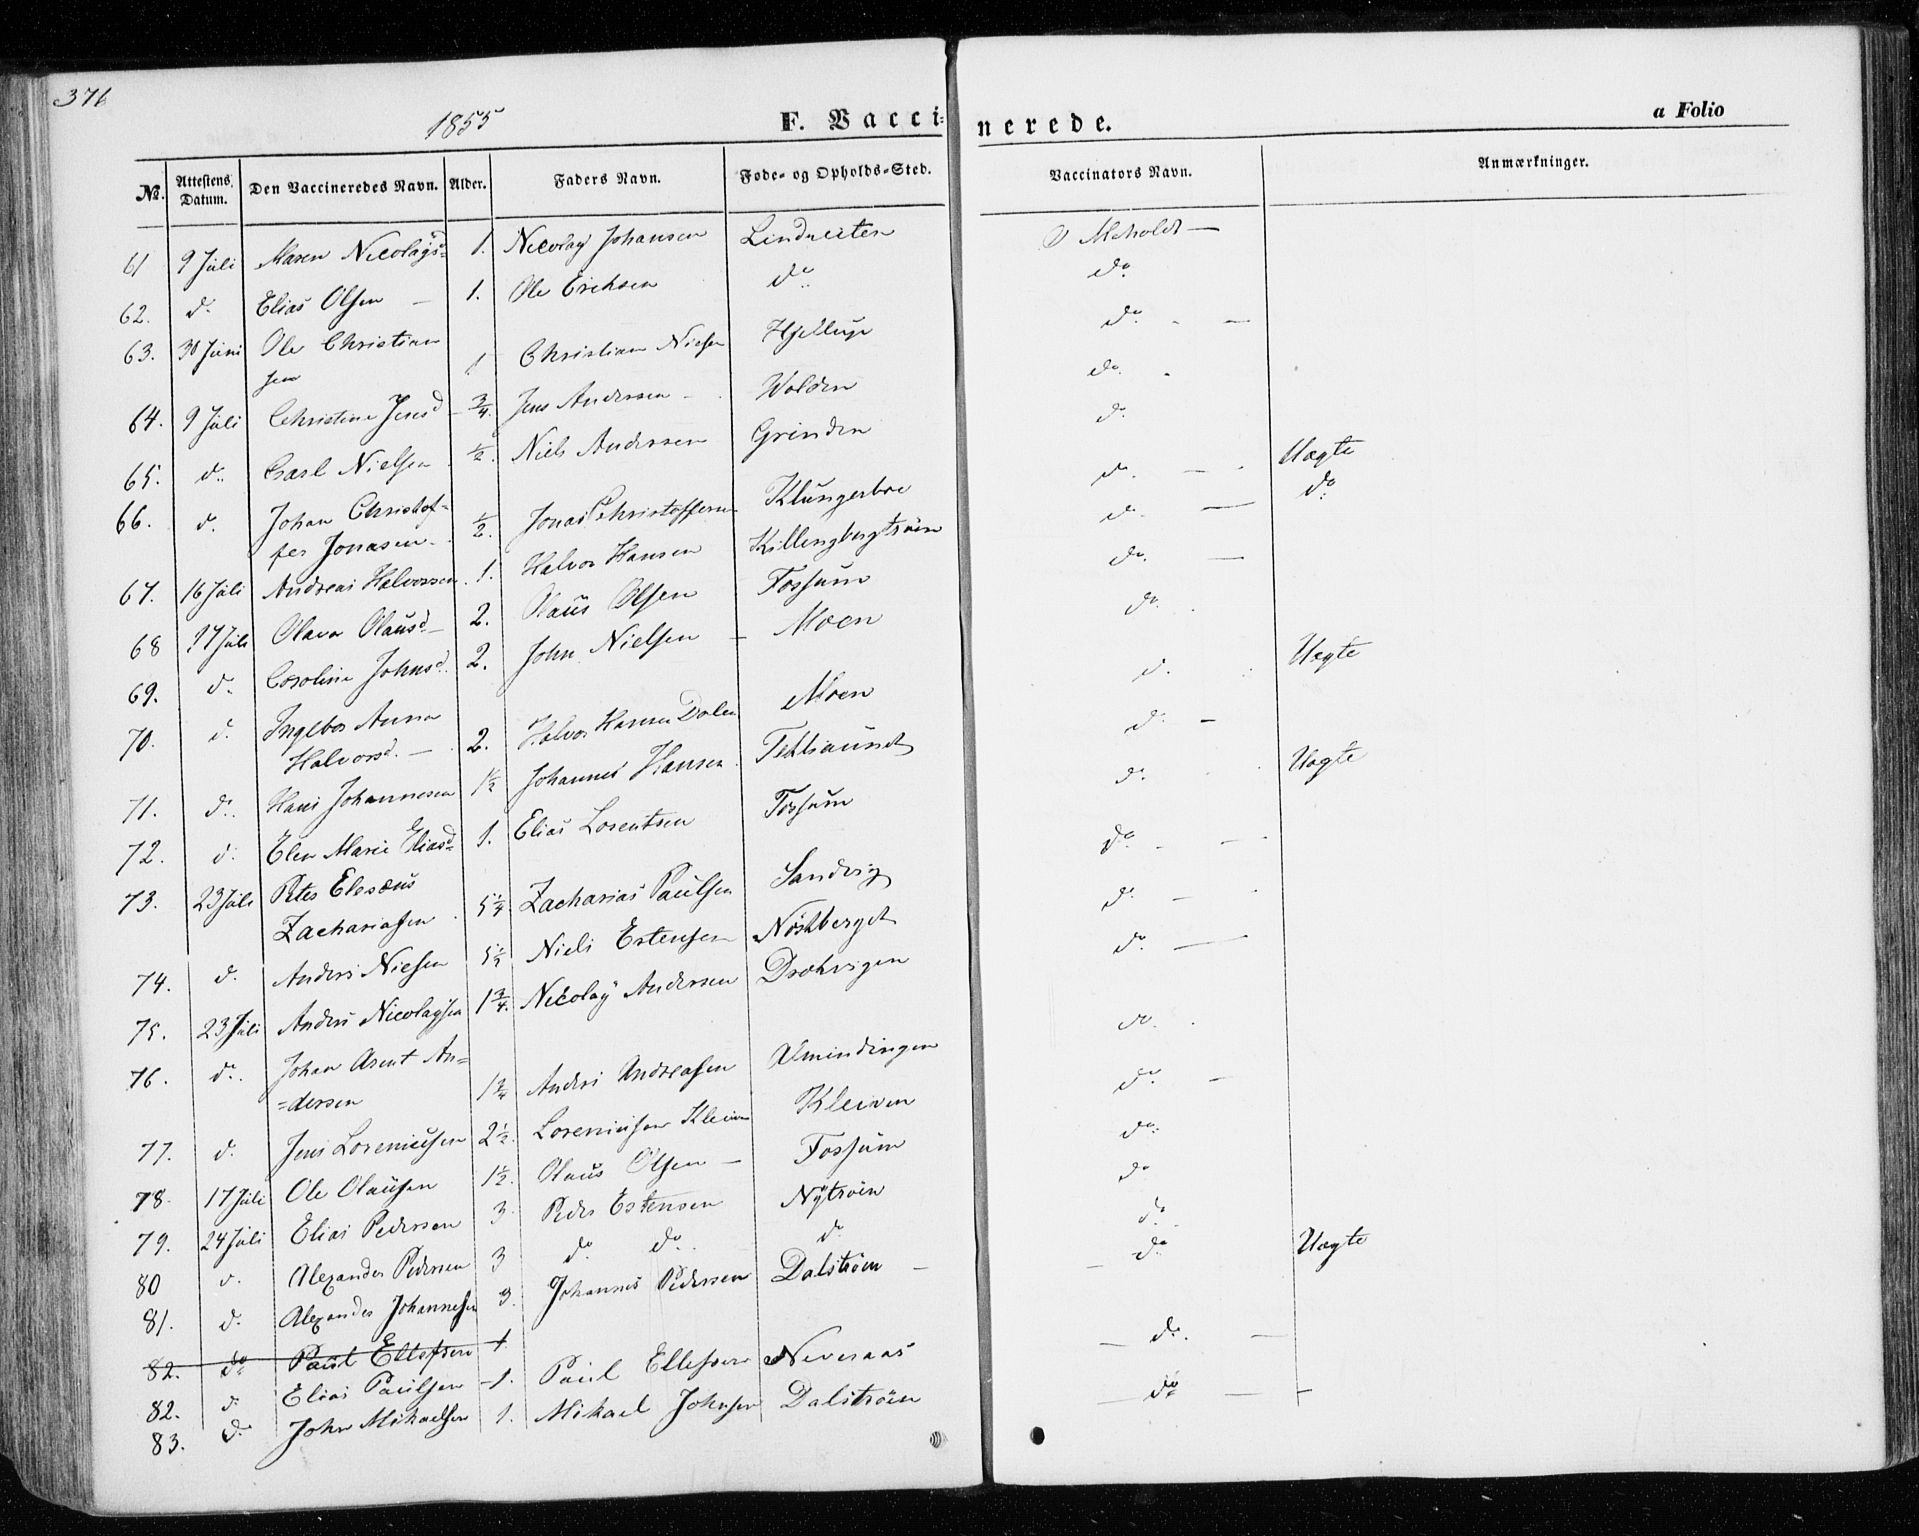 376
1855
F. Vaccinerede.
a Folio
No. Attestens Datum. Den Vaccineredes Navn. Alder. Faders Navn. Føde- og Opholds-Sted. Vaccinators Navn. Anmærkninger.
61 9 Juli Maren Nicolaysd 1. Nicolay Johansen Lindreiten Meholdt —
62. do Elias Olsen — 1. Ole Erichsen do do
63. 30 Juni Ole Christian 1 Christian Nielsen do
sen
64. 9 Juli Christine Jensd 3/4. Jens Andersen — Wolden do
65. do Carl Nielsen 1/2. Niels Andersen Grinden do
66. do Johan Christof- 1/2. Jonas Christoffersen Klungerbre do Uægte
fer Jonasen do
67. 16 Juli Andreas Halvorsen 1. Halvor Hansen Killengbergtrøen do
68 17 Juli Olava Olausd — 2. Olaus Olsen Fossum do
69. do Caroline Johnsd 2. John Nielsen — Moen do
70. do Ingebor Anna do Uægte
Halvorsd. — 2. Halvor Hansen Dalen Moen
71. do Hans Johannesen 1 1/2 Johannes Hansen do
72. do Elen Marie Eliasd 1. Elias Lorentsen Fossum do Uægte
73. 23 Juli Peter Elesæus do
Zachariasen 5 1/4 Zacharias Paulsen Sandvig
74. do Anders Nielsen 5 1/2 Niels Estensen Nøstberget do
75. 23 Juli Anders Nicolaysen 1 3/4. Nicolay Andersen Drakvigen do
76. do Johan Arent An= do
=dersen 1 3/4 Anders Andreasen Almindingen
77. do Jens Loreniusen 2 1/2. Loreniusen Kleiven Kleiven do
78. 17 Juli Ole Olausen 1 1/2. Olaus Olsen — Fossum do
79. 24 Juli Elias Pedersen 3 Peder Estensen Nÿtrøen do
80 do Alexander Pedersen 3 do do do do
81. do Alexander Johannesen 3. Johannes Pedersen Dalstrøen — do Uægte
82. do Paul Ellefsen 1
82. do Elias Paulsen — 1. Paul Ellefsen Neveraas do
83. do John Mikaelsen 1. Mikael Johnsen Dalstrøen do